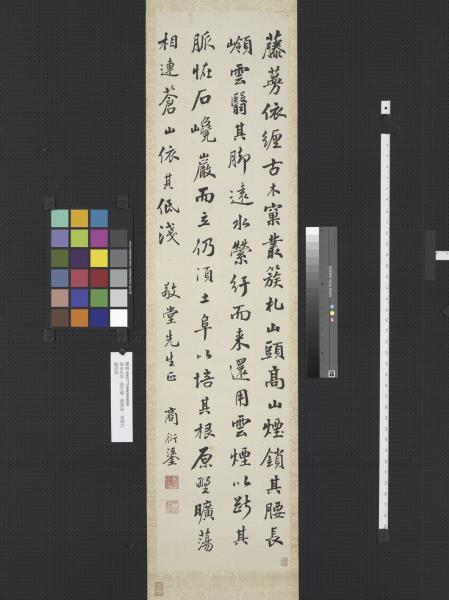 藤蔓依纏古木窠叢簇札山頭高山煙鎖其腰長
嶺雲翳其脚遠水縈紆而来還用雲煙以斷其
脈恠石巉巖而立仍須土阜以培其根原野曠蕩
相連蒼山依其低淺
敬堂先生正
商衍鎏